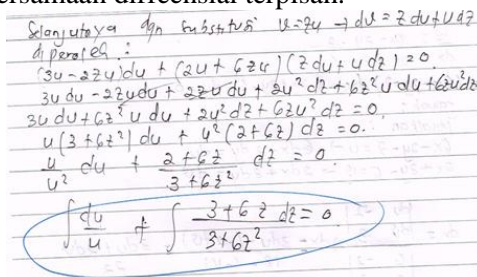 persamaan differensial terpisah.
Selanjutnya dgn substitusi v=zu → dv = z du + u dz
diperoleh :
(3u - 2zu)du + (2u + 6zu)(z du + u dz) = 0.
3u du - 2zu du + 2zu du + 2u² dz + 6z² u du + 6zu² dz
3u du + 6z² u du + 2u² dz + 6zu² dz = 0.
u(3 + 6z²) du + u² (2 + 6z) dz = 0.
u/u² du + (2 + 6z)/(3 + 6z²) dz = 0.
∫ du/u + ∫ (3 + 6z dz)/(3 + 6z²) = 0